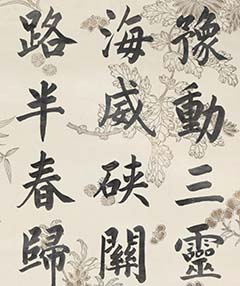 豫動三靈
海威硤關
路半春歸